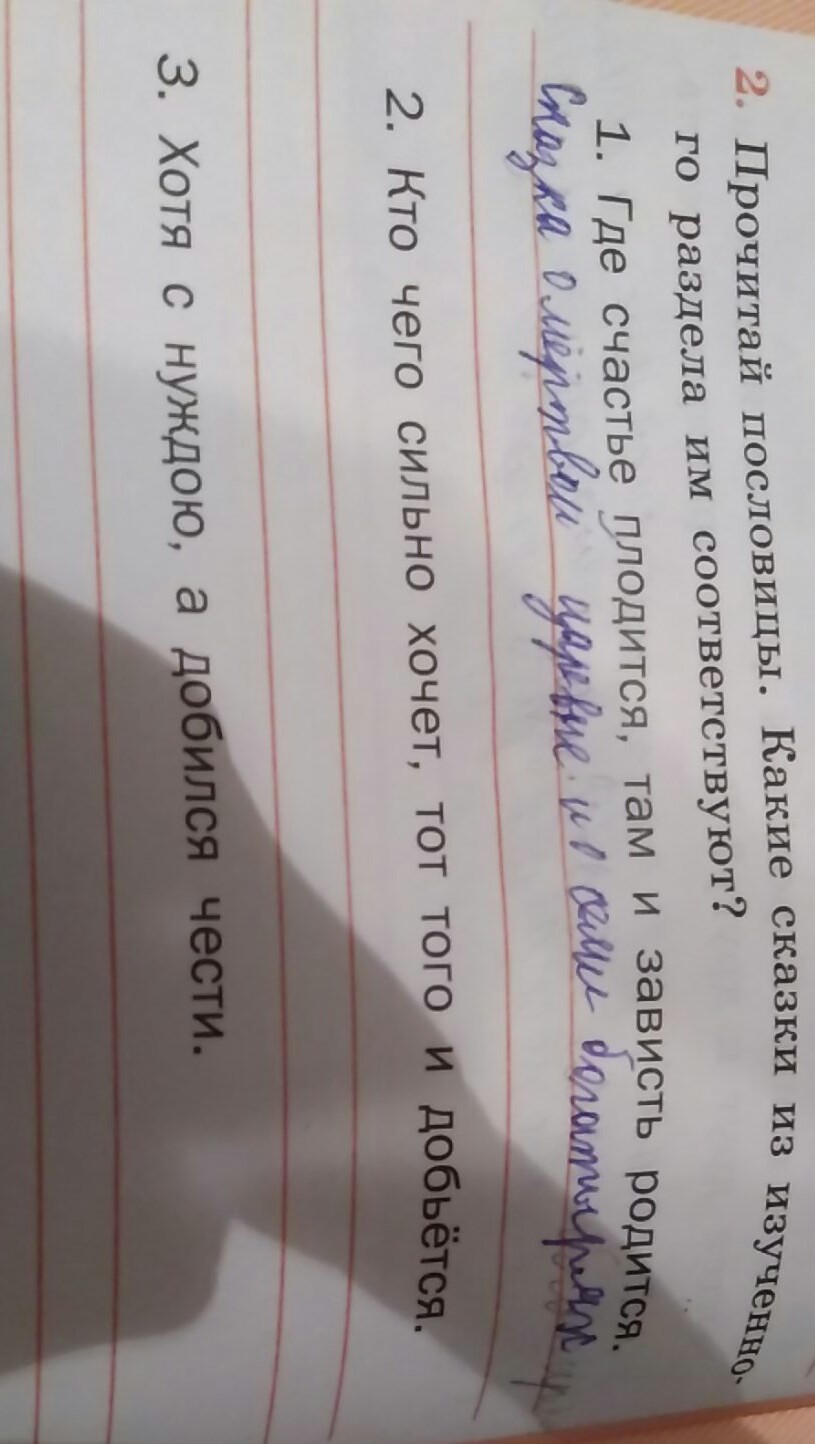 2. Прочитай пословицы. Какие сказки из изученно-
го раздела им соответствуют?
1. Где счастье плодится, там и зависть родится.
Сказка о мёртвой царевне и о семи богатырях
2. Кто чего сильно хочет, тот того и добьётся.
3. Хотя с нуждою, а добился чести.